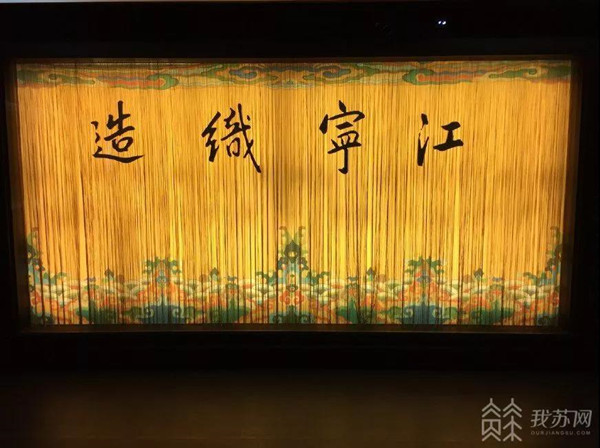 江寧織造
我苏网
OURJIANGSU.COM